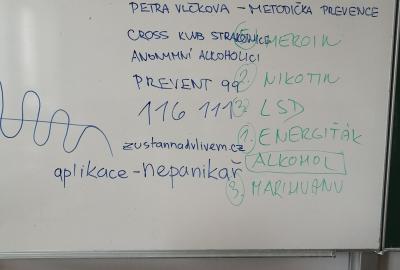 PETRA VLČKOVA - METODIČKA PREVENCE
CROSS KLUB STRAKONICE
ANONYMNÍ ALKOHOLICI
PREVENT 99
116 111
zustannadvlivem.cz
aplikace - nepanikař
HEROIN
2. NIKOTIN
LSD
1. ENERGIŤÁK
ALKOHOL
3. MARIHUANU